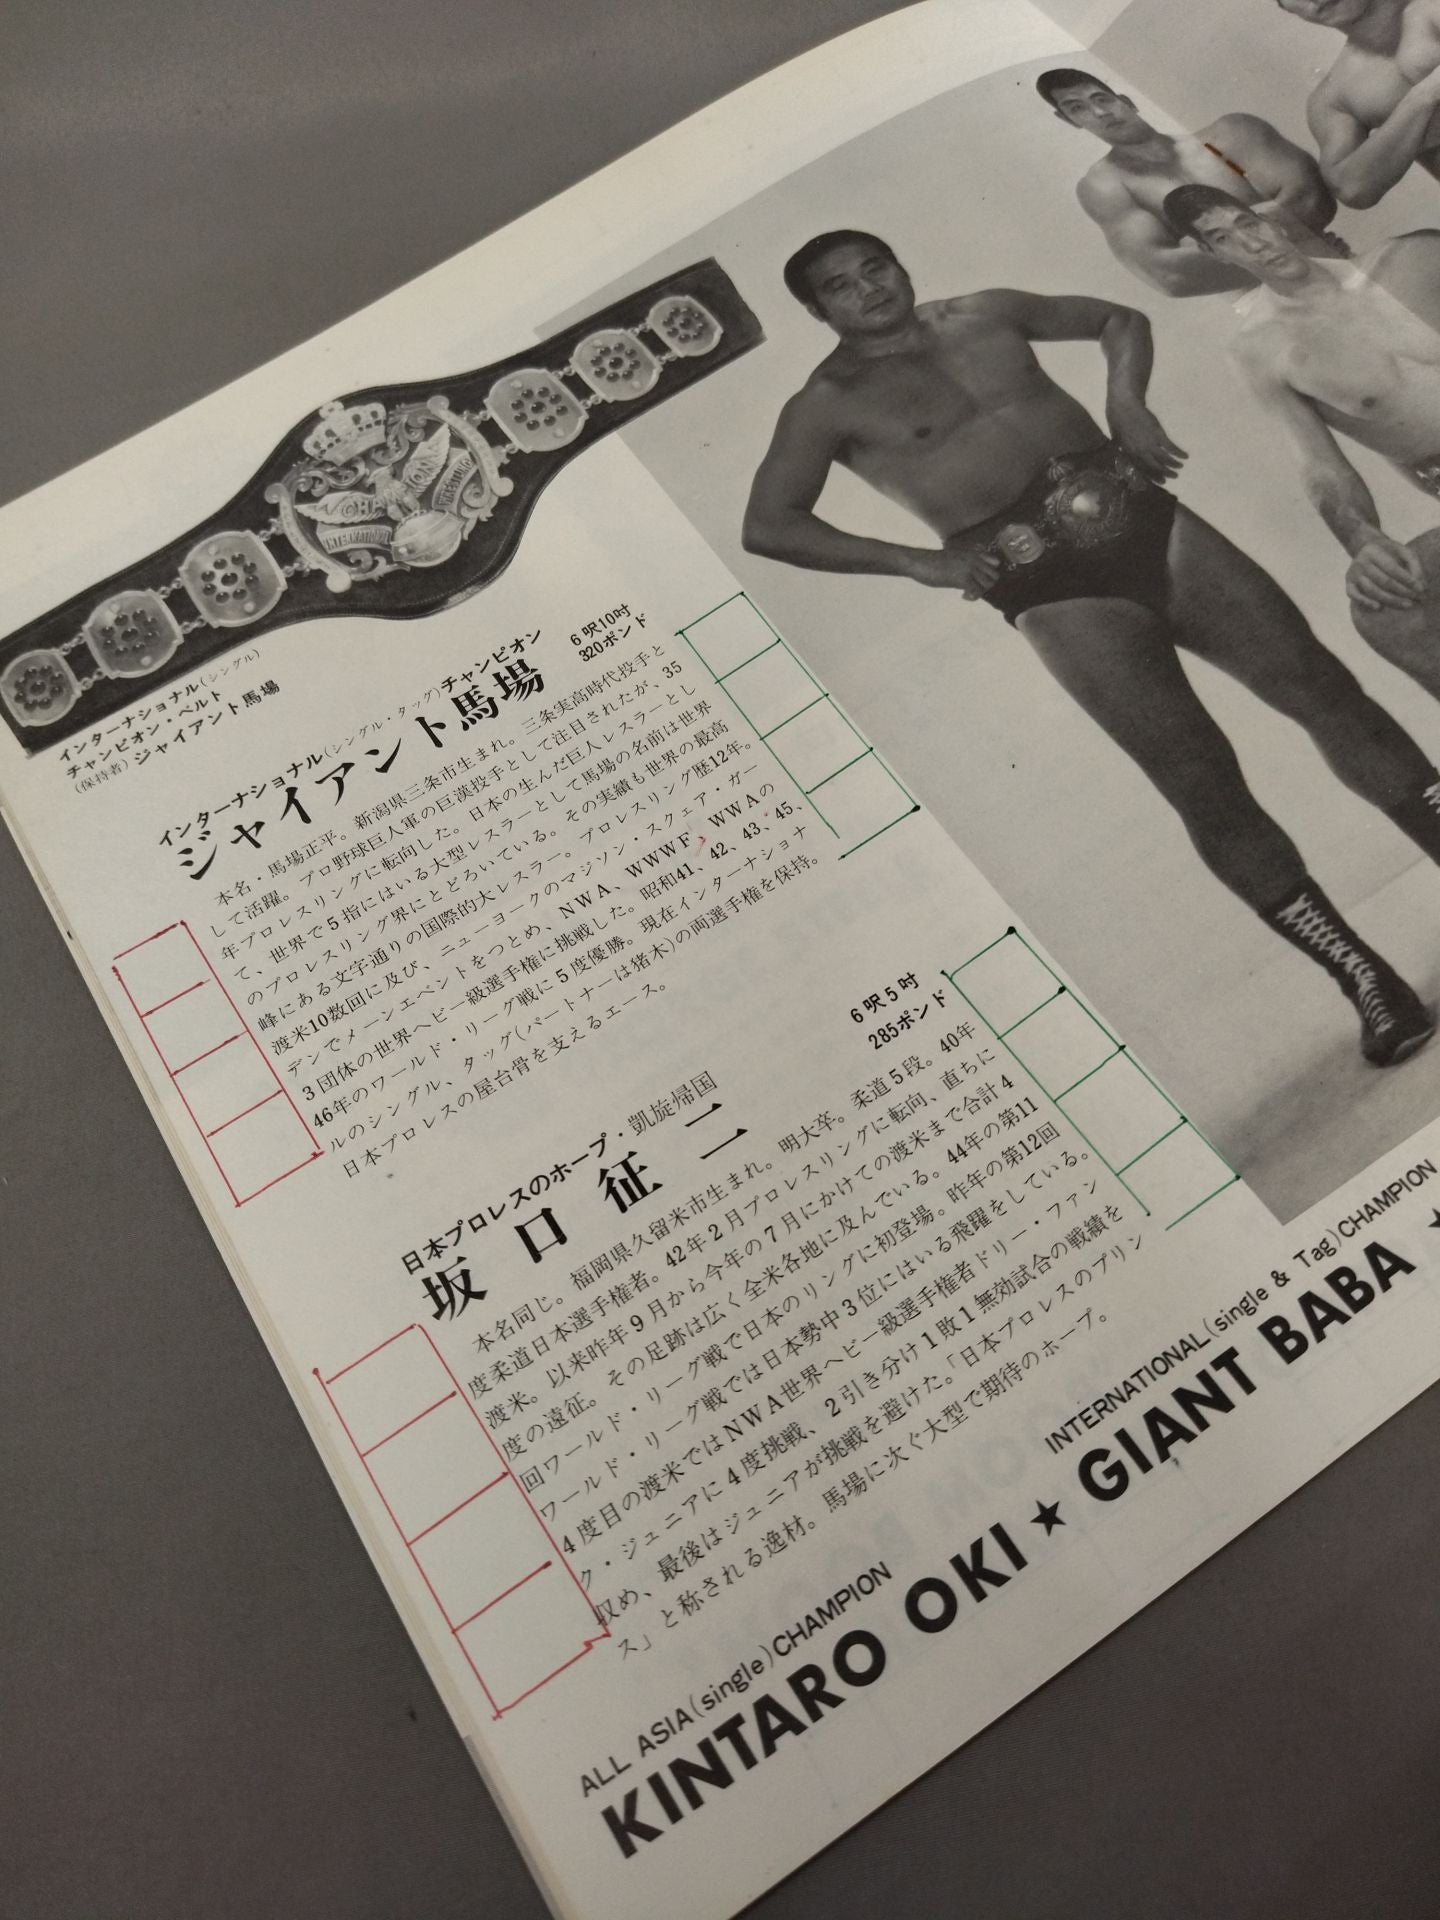 CHAMPION
INTERNATIONAL
WRESTLING
インターナショナル(シングル)
チャンピオン・ベルト
(保持者) ジャイアント馬場
インターナショナル(シングル・タッグ)チャンピオン
ジャイアント馬場
6呎10吋
320ポンド
本名・馬場正平。新潟県三条市生まれ。三条実高時代投手と
して活躍。プロ野球巨人軍の巨漢投手として注目されたが、35
年プロレスリングに転向した。日本の生んだ巨人レスラーとし
て、世界で5指にはいる大型レスラーとして馬場の名前は世界
のプロレスリング界にとどろいている。その実績も世界の最高
峰にある文字通りの国際的大レスラー。プロレスリング歴12年。
渡米10数回に及び、ニューヨークのマジソン・スクェア・ガー
デンでメーンエベントをつとめ、NWA、WWWF、WWAの
3団体の世界ヘビー級選手権に挑戦した。昭和41、42、43、45、
46年のワールド・リーグ戦に5度優勝。現在インターナショナ
ルのシングル、タッグ(パートナーは猪木)の両選手権を保持。
日本プロレスの屋台骨を支えるエース。
日本プロレスのホープ・凱旋帰国
坂口征二
6呎5吋
285ポンド
本名同じ。福岡県久留米市生まれ。明大卒。柔道5段。40年
度柔道日本選手権者。42年2月プロレスリングに転向、直ちに
渡米。以来昨年9月から今年の7月にかけての渡米まで合計4
度の遠征。その足跡は広く全米各地に及んでいる。44年の第11
回ワールド・リーグ戦で日本のリングに初登場。昨年の第12回
ワールド・リーグ戦では日本勢中3位にはいる飛躍をしている。
4度目の渡米ではNWA世界ヘビー級選手権者ドリー・ファン
ク・ジュニアに4度挑戦、2引き分け1敗1無効試合の戦績を
収め、最後はジュニアが挑戦を避けた。「日本プロレスのプリン
ス」と称される逸材。馬場に次ぐ大型で期待のホープ。
ALL ASIA(single)CHAMPION
KINTARO OKI ★
INTERNATIONAL(single & Tag)CHAMPION
GIANT BABA ★